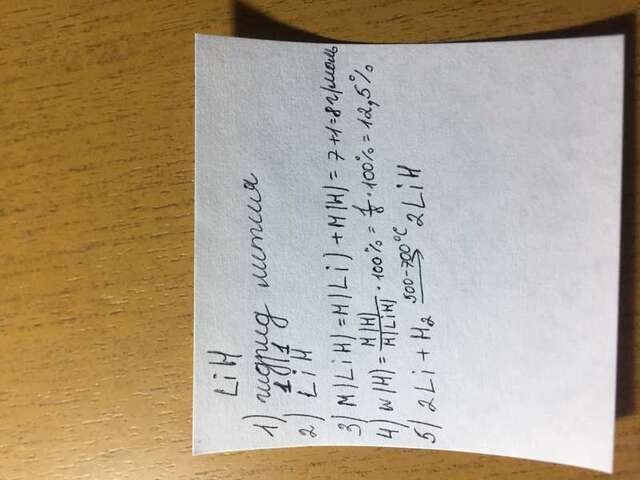 LiH
1) гидрид лития
2) LiH 1 1
3) M(LiH)=M(Li)+M(H)=7+1=8г/моль
4) W(H)=M(H)/M(LiH)·100%=1/8·100%=12,5%
5) 2Li+H₂ 500-700°C→ 2LiH